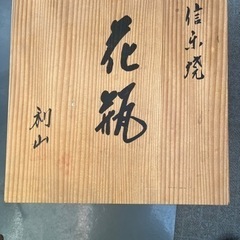 信楽焼
花瓶
利山